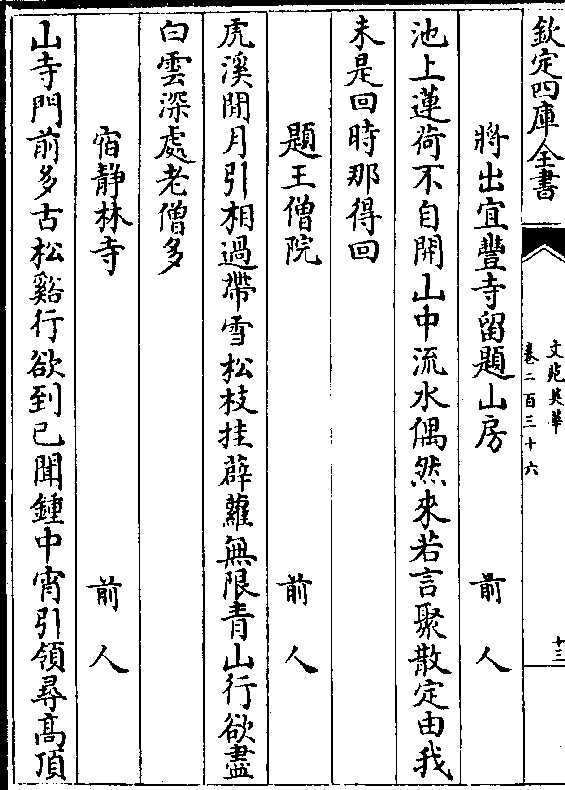 欽定四庫全書
文苑英華
卷二百三十六
十三
將出宜豐寺留題山房 前人
池上蓮荷不自開山中流水偶然來若言聚散定由我
未是回時那得回
題王僧院 前人
虎溪閒月引相過帶雪松枝挂薜蘿無限青山行欲盡
白雲深處老僧多
宿靜林寺 前人
山寺門前多古松谿行欲到已聞鍾中宵引領尋高頂